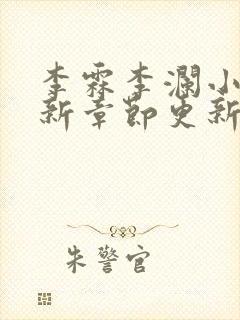 李霖李澜小
新章节更新
朱警官